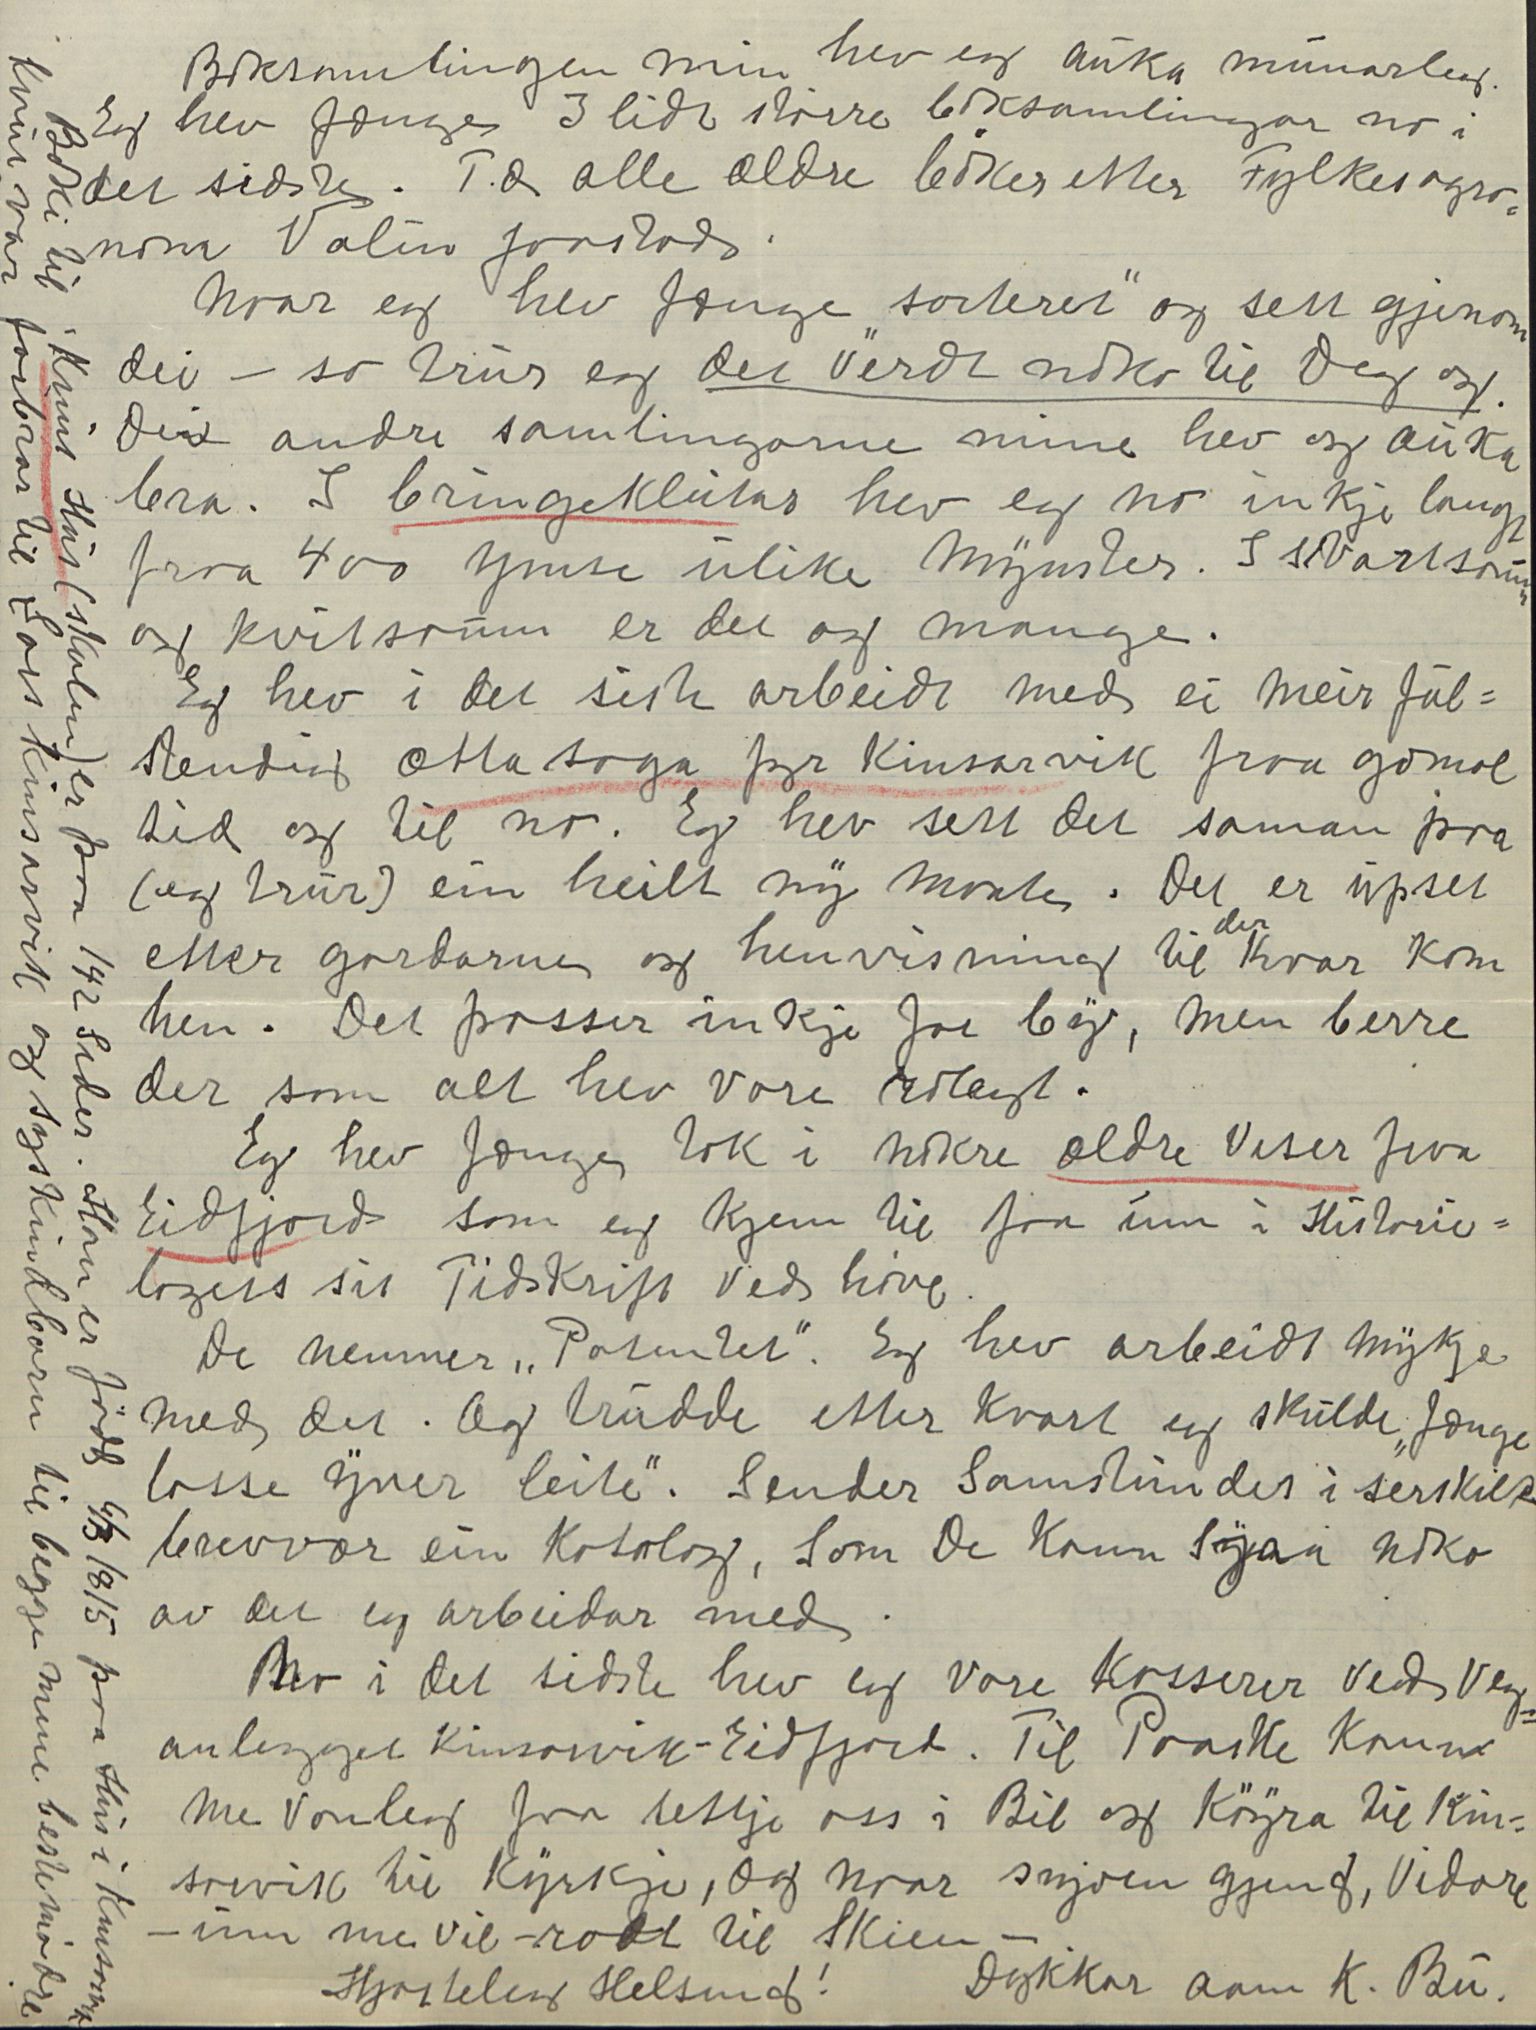 Boksamlingen min hev eg auka munarleg.
Eg hev fenge 3 lidt större boksamlingar no i
det sidste. T.d. alle eldre böker etter Fylkesagro=
nom Valen
Naar eg hev fenge "sorteret" og sett gjenom
dei – so trur eg det verdt noko til Deg og.
Dei andre samlingarne mine hev og auka
bra. I bringeklutar hev eg no inkje langt
fraa 400 ymse ulike mynster. I svartsaum
og kvitsaum er det og mange.
Eg hev i det siste arbeidt med ei meir ful=
stendig ættasoga fyr Kinsarvik fraa gomol
tid og til no. Eg hev sett det saman paa
(eg trur) ein heilt ny maate. Det er upset
etter gardarne og henvisning til der kvar kom
hen. Det passer inkje for by, men berre
der som alt hev vore rolegt.
Eg hev fenge tak i nokre eldre viser fraa
Eidfjord som eg kjem til faa inn i Historie=
lagets sit Tidskrift ved höve.
De nemner "Patentet". Eg hev arbeidt mykje
med det. Og trudde etter kvart eg skulde "fenge
lasse yver leite". Sender samstundes i serskilt
brevvær ein Katalog, som De kann sjaa noko
av det eg arbeidar med.
No i det sidste hev eg vore kasserer ved Veg=
anlegget Kinsarvik-Eidfjord. Til Paaske kann
me vonleg faa setja oss i Bil og köyra til Kin=
sarvik til Kyrkje, og naar snjoen gjeng, vidare
– um me vil – radt til Skien –
Hjarteleg Helsing! Dykkar aam K. Bu.
Boki til Knut Hus (skulen) er paa 142 Sider. Han er född 6/3 1815 paa Hus i Kinsarvik
Knut var farbror til Lars Kinsarvik og syskindbarn til begge mine bestemödre.